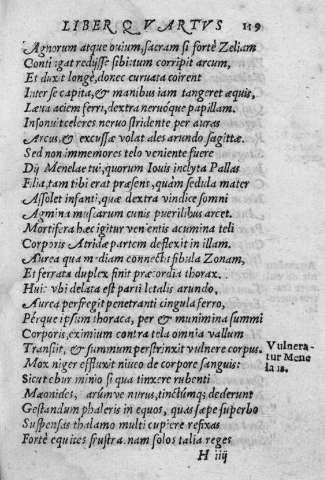 LIBER QVARTVS 119
Agnorum atque ouium, sacram si fortè Zeliam
Contigat redÿsse sibi tum corripit arcum,
Et duxit longè, donec curuata coirent
Inter se capita, & manibus iam tangeret æquis,
Læua aciem ferri, dextra neruoque papillam.
Insonuit celeres neruo stridente per auras
Arcus, & excussæ volat ales arundo sagittæ.
Sed non immemores telo veniente fuere
Dÿ Menelae tui, quorum Iouis inclyta Pallas
Filia, tam tibi erat præsens, quàm sedula mater
Assolet infanti, quæ dextra vindice somni
Agmina muscarum cunis puerilibus arcet.
Mortifera hæc igitur venientis acumina teli
Corporis Atridæ partem deflexit in illam.
Aurea qua mediam connectit fibula Zonam,
Et ferrata duplex finit præcordia thorax.
Huic vbi delata est parti letalis arundo,
Aurea perfregit penetranti cingula ferro,
Pérque ipsum thoraca, per & munimina summi
Corporis, eximium contra tela omnia vallum
Transÿt, & summum perstrinxit vulnere corpus.
Vulnera-
tur Mene
laus.
Mox niger effluxit niueo de corpore sanguis:
Sicut ebur minio si qua tinxere rubenti
Mæonides, arúmve nurus, tinctúmq; dederunt
Gestandum phaleris in equos, quas sæpe superbo
Suspensas thalamo multi cupiere refixas
Fortè equites frustra. nam solos talia reges
H iiij